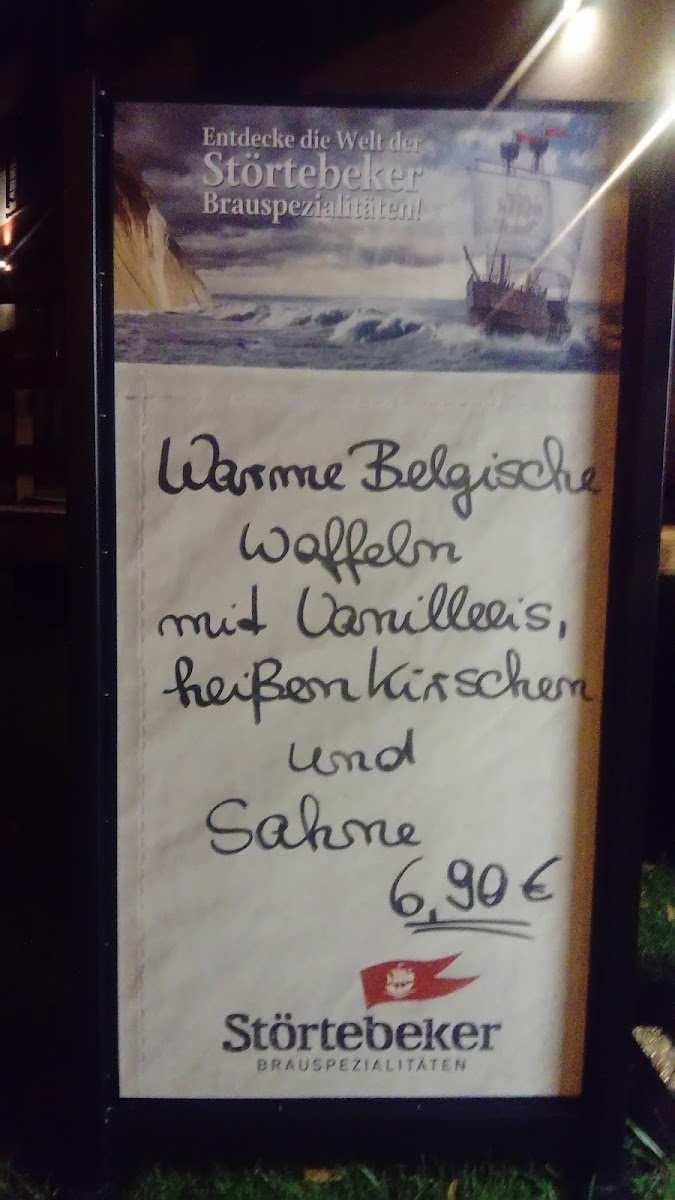 Entdecke die Welt der
Störtebeker
Brauspezialitäten!
Warme Belgische
Waffeln
mit Vanilleeis,
heißen Kirschen
und
Sahne
6,90 €
Störtebeker
BRAUSPEZIALITÄTEN